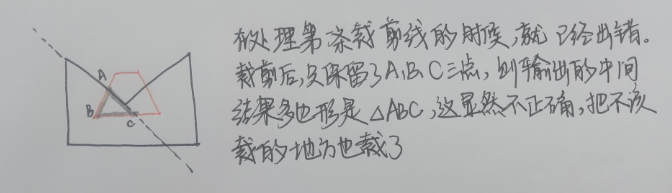 在处理第一条裁剪线的时候,就已经出错。
裁剪后,只保留了A、B、C三点,则输出的中间
结果多边形是△ABC,这显然不正确,把不该
裁的地方也裁了
A
B
C